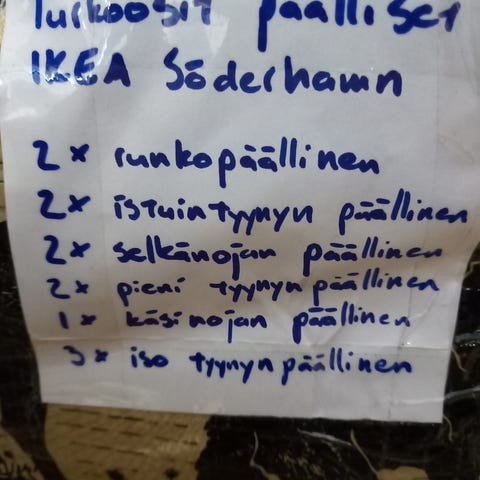 Turkoosit päälliset
IKEA Söderhamn
2x runkopäällinen
2x istuintyynyn päällinen
2x selkänojan päällinen
2x pieni tyynynpäällinen
1x käsinojan päällinen
3x iso tyynynpäällinen